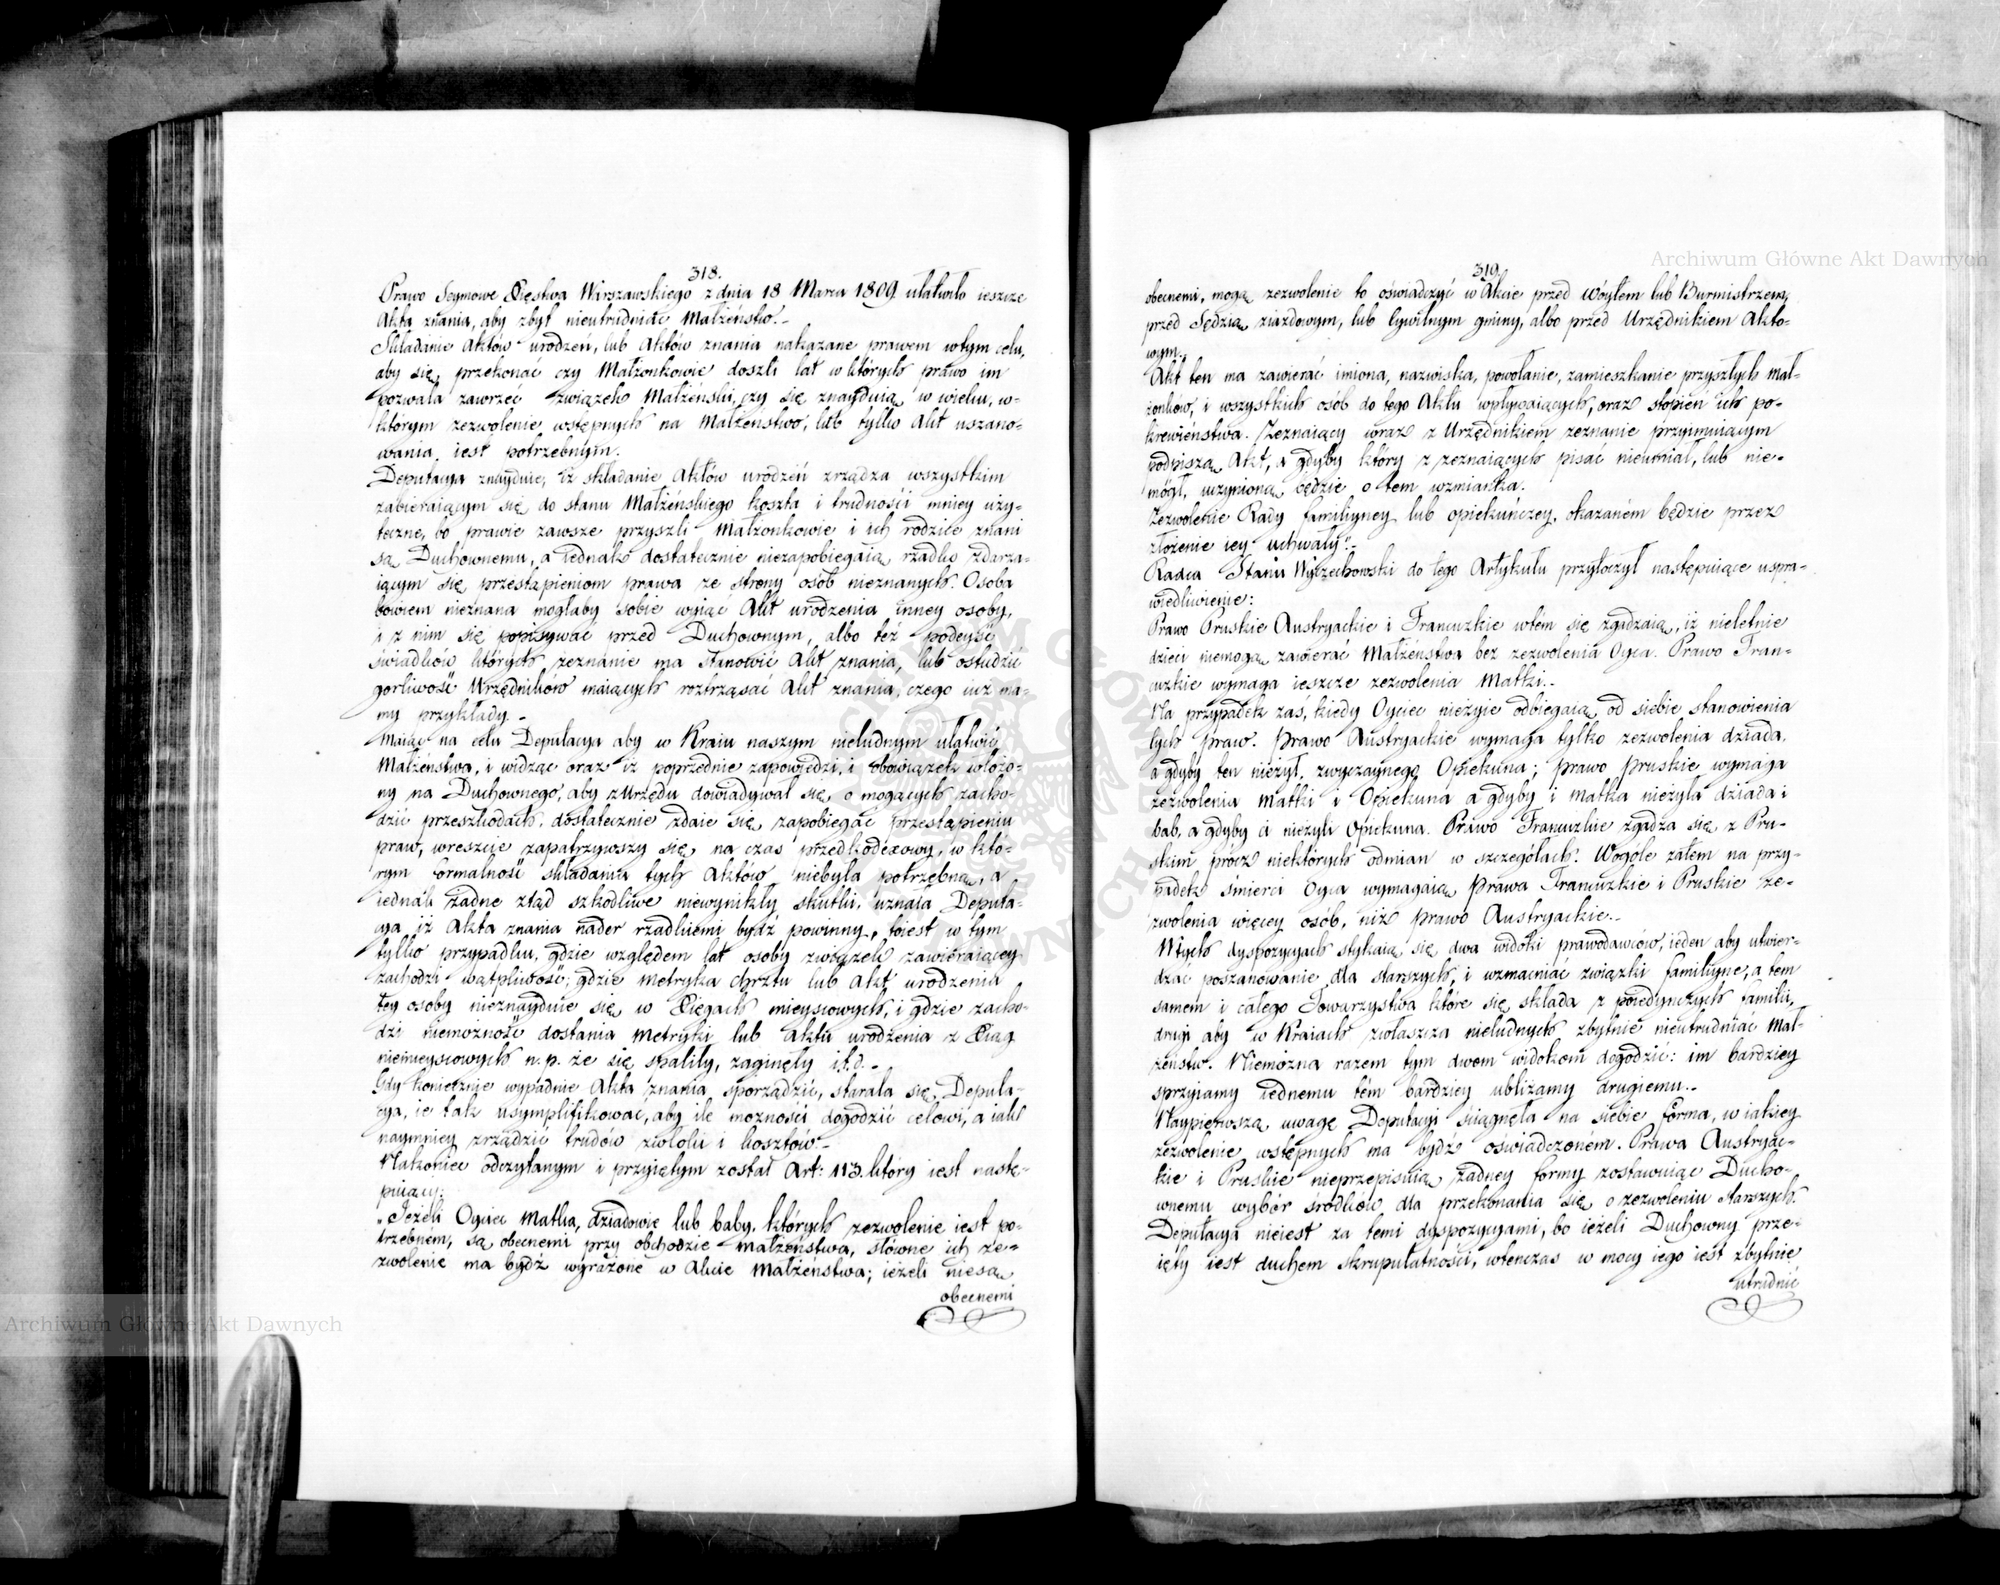 318.
Prawo Seymowe Xięstwa Warszawskiego z dnia 18 Marca 1809 ułatwiło ieszcze
Akta znania, aby zbyt nieutrudniać Małżeństw.-
Składanie Aktów urodzeń, lub Aktów znania nakazane prawem w tym celu,
aby się przekonać czy Małżonkowie doszli lat w których prawo im
pozwala zawrzeć związek Małżeński, czy się znayduią w wieku, w-
którym zezwolenie wstępnych na Małżeństwo, lub tylko Akt uszano-
wania, iest potrzebnym.
Deputacya znayduie, iż składanie Aktów urodzeń zrządza wszystkim
zabieraiącym się do stanu Małżeńskiego koszta i trudności mniey uży-
teczne, bo prawie zawsze przyszli Małżonkowie i ich rodzice znani
są Duchownemu, a iednak dostatecznie niezapobiegaią rzadko zdarza-
iącym się przestąpieniom prawa ze strony osób nieznanych. Osoba
bowiem nieznana mogłaby sobie wyiąć Akt urodzenia inney osoby,
i z nim się popisywać przed Duchownym, albo też podeyść
świadków których zeznanie ma stanowić Akt znania, lub ostudzić
gorliwość Urzędników maiących roztrząsać Akt znania, czego iuż ma-
my przykłady.-
Maiąc na celu Deputacya aby w Kraiu naszym nieludnym ułatwić
Małżeństwa, i widząc oraz iż poprzednie zapowiedzi, i obowiązek włożo-
ny na Duchownego, aby z Urzędu dowiadywał się, o mogących zacho-
dzić przeszkodach, dostatecznie zdaie się zapobiegać przestąpieniu
praw, wreszcie zapatrzywszy się na czas przedkodexowy, w któ-
rym formalność składania tych Aktów niebyła potrzebną, a
iednak żadne ztąd szkodliwe niewynikły skutki, uznaia Deputa-
cya iż Akta znania nader rzadkiemi bydź powinny, toiest w tym
tylko przypadku, gdzie względem lat osoby związek zawieraiącey
zachodzi wątpliwość; gdzie metryka chrztu lub Akt urodzenia
tey osoby nieznayduie się w Xięgach mieyscowych, i gdzie zacho-
dzi niemożność dostania Metryki lub Aktu urodzenia z Xiąg
niemieyscowych n.p. że się spaliły, zaginęły i.t.d.-
Gdy koniecznie wypadnie Akta znania sporządzić, starała się Deputa-
cya, ie tak usymplifikować, aby ile możności dogodzić celowi, a iak
naymniey zrządzić trudów zwłoki i kosztów.-
Nakoniec odczytanym i przyiętym został Art: 113. który iest nastę-
puiący:
"Jeżeli Oyciec Matka, dziadowie lub baby, których zezwolenie iest po-
trzebném, są obecnemi przy obchodzie małżeństwa, słowne ich ze-
zwolenie ma bydź wyrażone w Akcie Małżeństwa; ieżeli niesą
obecnemi
319.
obecnemi, mogą zezwolenie to oświadczyć w Akcie przed Wóytem lub Burmistrzem,
przed Sędzią ziazdowym, lub Cywilnym gminy, albo przed Urzędnikiem Akto-
wym.
Akt ten ma zawierać imiona, nazwiska, powołanie, zamieszkanie przyszłych mał-
żonków, i wszystkich osób do tego Aktu wpływaiących, oraz stopień ich po-
krewieństwa. Zeznaiący wraz z Urzędnikiem zeznanie przyimuiącym
podpiszą Akt, a gdyby który z zeznaiących pisać nieumiał, lub nie-
mógł, uczynioną będzie o tem wzmianka.
Zezwolenie Rady familiyney lub opiekuńczey, okazaném będzie przez
złożenie iey uchwały".-
Radca Stanu Wyczechowski do tego Artykułu przytoczył następuiące uspra-
wiedliwienie:
Prawo Pruskie Austryackie i Francuzkie w tém się zgadzaią, iż nieletnie
dzieci niemogą zawierać Małżeństwa bez zezwolenia Oyca. Prawo Fran-
cuzkie wymaga ieszcze zezwolenia Matki.-
Na przypadek zaś, kiedy Oyciec nieżyie odbiegaią od siebie stanowienia
tych praw. Prawo Austryackie wymaga tylko zezwolenia dziada,
a gdyby ten nieżył, zwyczaynego Opiekuna; prawo pruskie wymaga
zezwolenia Matki i Opiekuna a gdyby i Matka nieżyła dziada i
bab, a gdyby ci nieżyli Opiekuna. Prawo Francuzkie zgadza się z Pru-
skim prócz niektórych odmian w szczegółach. Wogóle zatem na przy-
padek śmierci Oyca wymagaią Prawa Francuzkie i Pruskie ze-
zwolenia więcey osób, niż prawo Austryackie.-
W tych dyspozycyach stykaią się dwa widoki prawodawców, ieden aby utwier-
dzać poszanowanie dla starszych, i wzmacniać związki familiyne, a tem
samem i całego Towarzystwa które się składa z poiedynczych familii,
drugi aby w Kraiach zwłaszcza nieludnych zbytnie nieutrudniać Mał-
żeństw. Niemożna razem tym dwom widokom dogodzić: im bardziey
sprzyiamy iednemu tém bardziey ubliżamy drugiemu.-
Naypierwszą uwagę Deputacyi ściągnęła na siebie forma, w iakiey
zezwolenie wstępnych ma bydź oświadczoném. Prawa Austryac-
kie i Pruskie nieprzepisuią żadney formy zostawuiąc Ducho-
wnemu wybór środków dla przekonania się o zezwoleniu starszych.
Deputacya nieiest za temi dyspozycyami, bo ieżeli Duchowny prze-
ięty iest duchem skrupulatności, wtenczas w mocy iego iest zbytnie
utrudnić
Archiwum Główne Akt Dawnych
Archiwum Główne Akt Dawnych